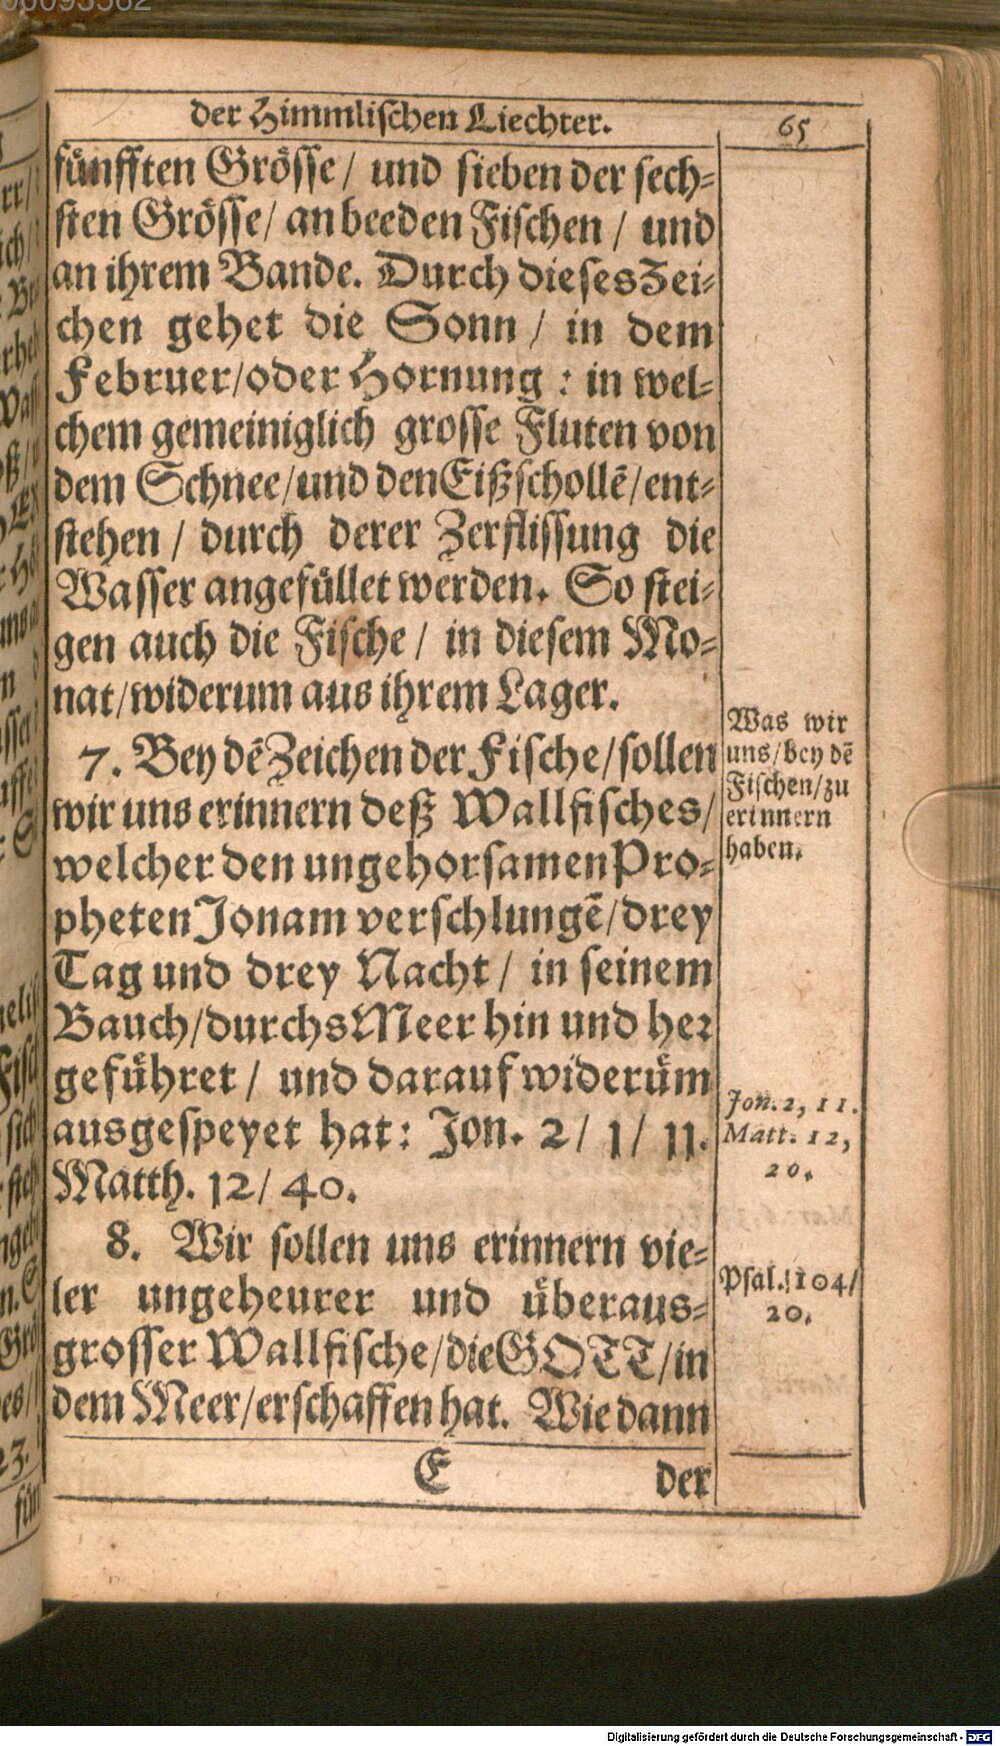 der Himmlischen Liechter. 65
fůnfften Grösse/ und sieben der sech-
sten Grösse/ an beeden Fischen / und
an ihrem Bande. Durch dieses Zei-
chen gehet die Sonn / in dem
Februer/oder Hornung : in wel-
chem gemeiniglich grosse Fluten von
dem Schnee/und den Eißschollẽ/ent-
stehen / durch derer Zerflissung die
Wasser angefüllet werden. So stei-
gen auch die Fische / in diesem Mo-
nat/widerum aus ihrem Lager.
7. Bey dẽ Zeichen der Fische/sollen
wir uns erinnern deß Wallfisches/
welcher den ungehorsamen Pro-
pheten Jonam verschlungẽ/drey
Tag und drey Nacht / in seinem
Bauch/durchs Meer hin und her
geführet / und darauf widerům
ausgespeyet hat: Jon. 2/ 1/ 11.
Matth. 12/ 40.
Was wir
uns/bey dẽ
Fischen/zu
erinnern
haben.
Jon. 2, 11.
Matt. 12,
20.
8. Wir sollen uns erinnern vie-
ler ungeheurer und überaus-
grosser Wallfische/die GOTT/in
dem Meer/erschaffen hat. Wie dann
Psal. 104/
20.
E der
Digitalisierung gefördert durch die Deutsche Forschungsgemeinschaft - DFG